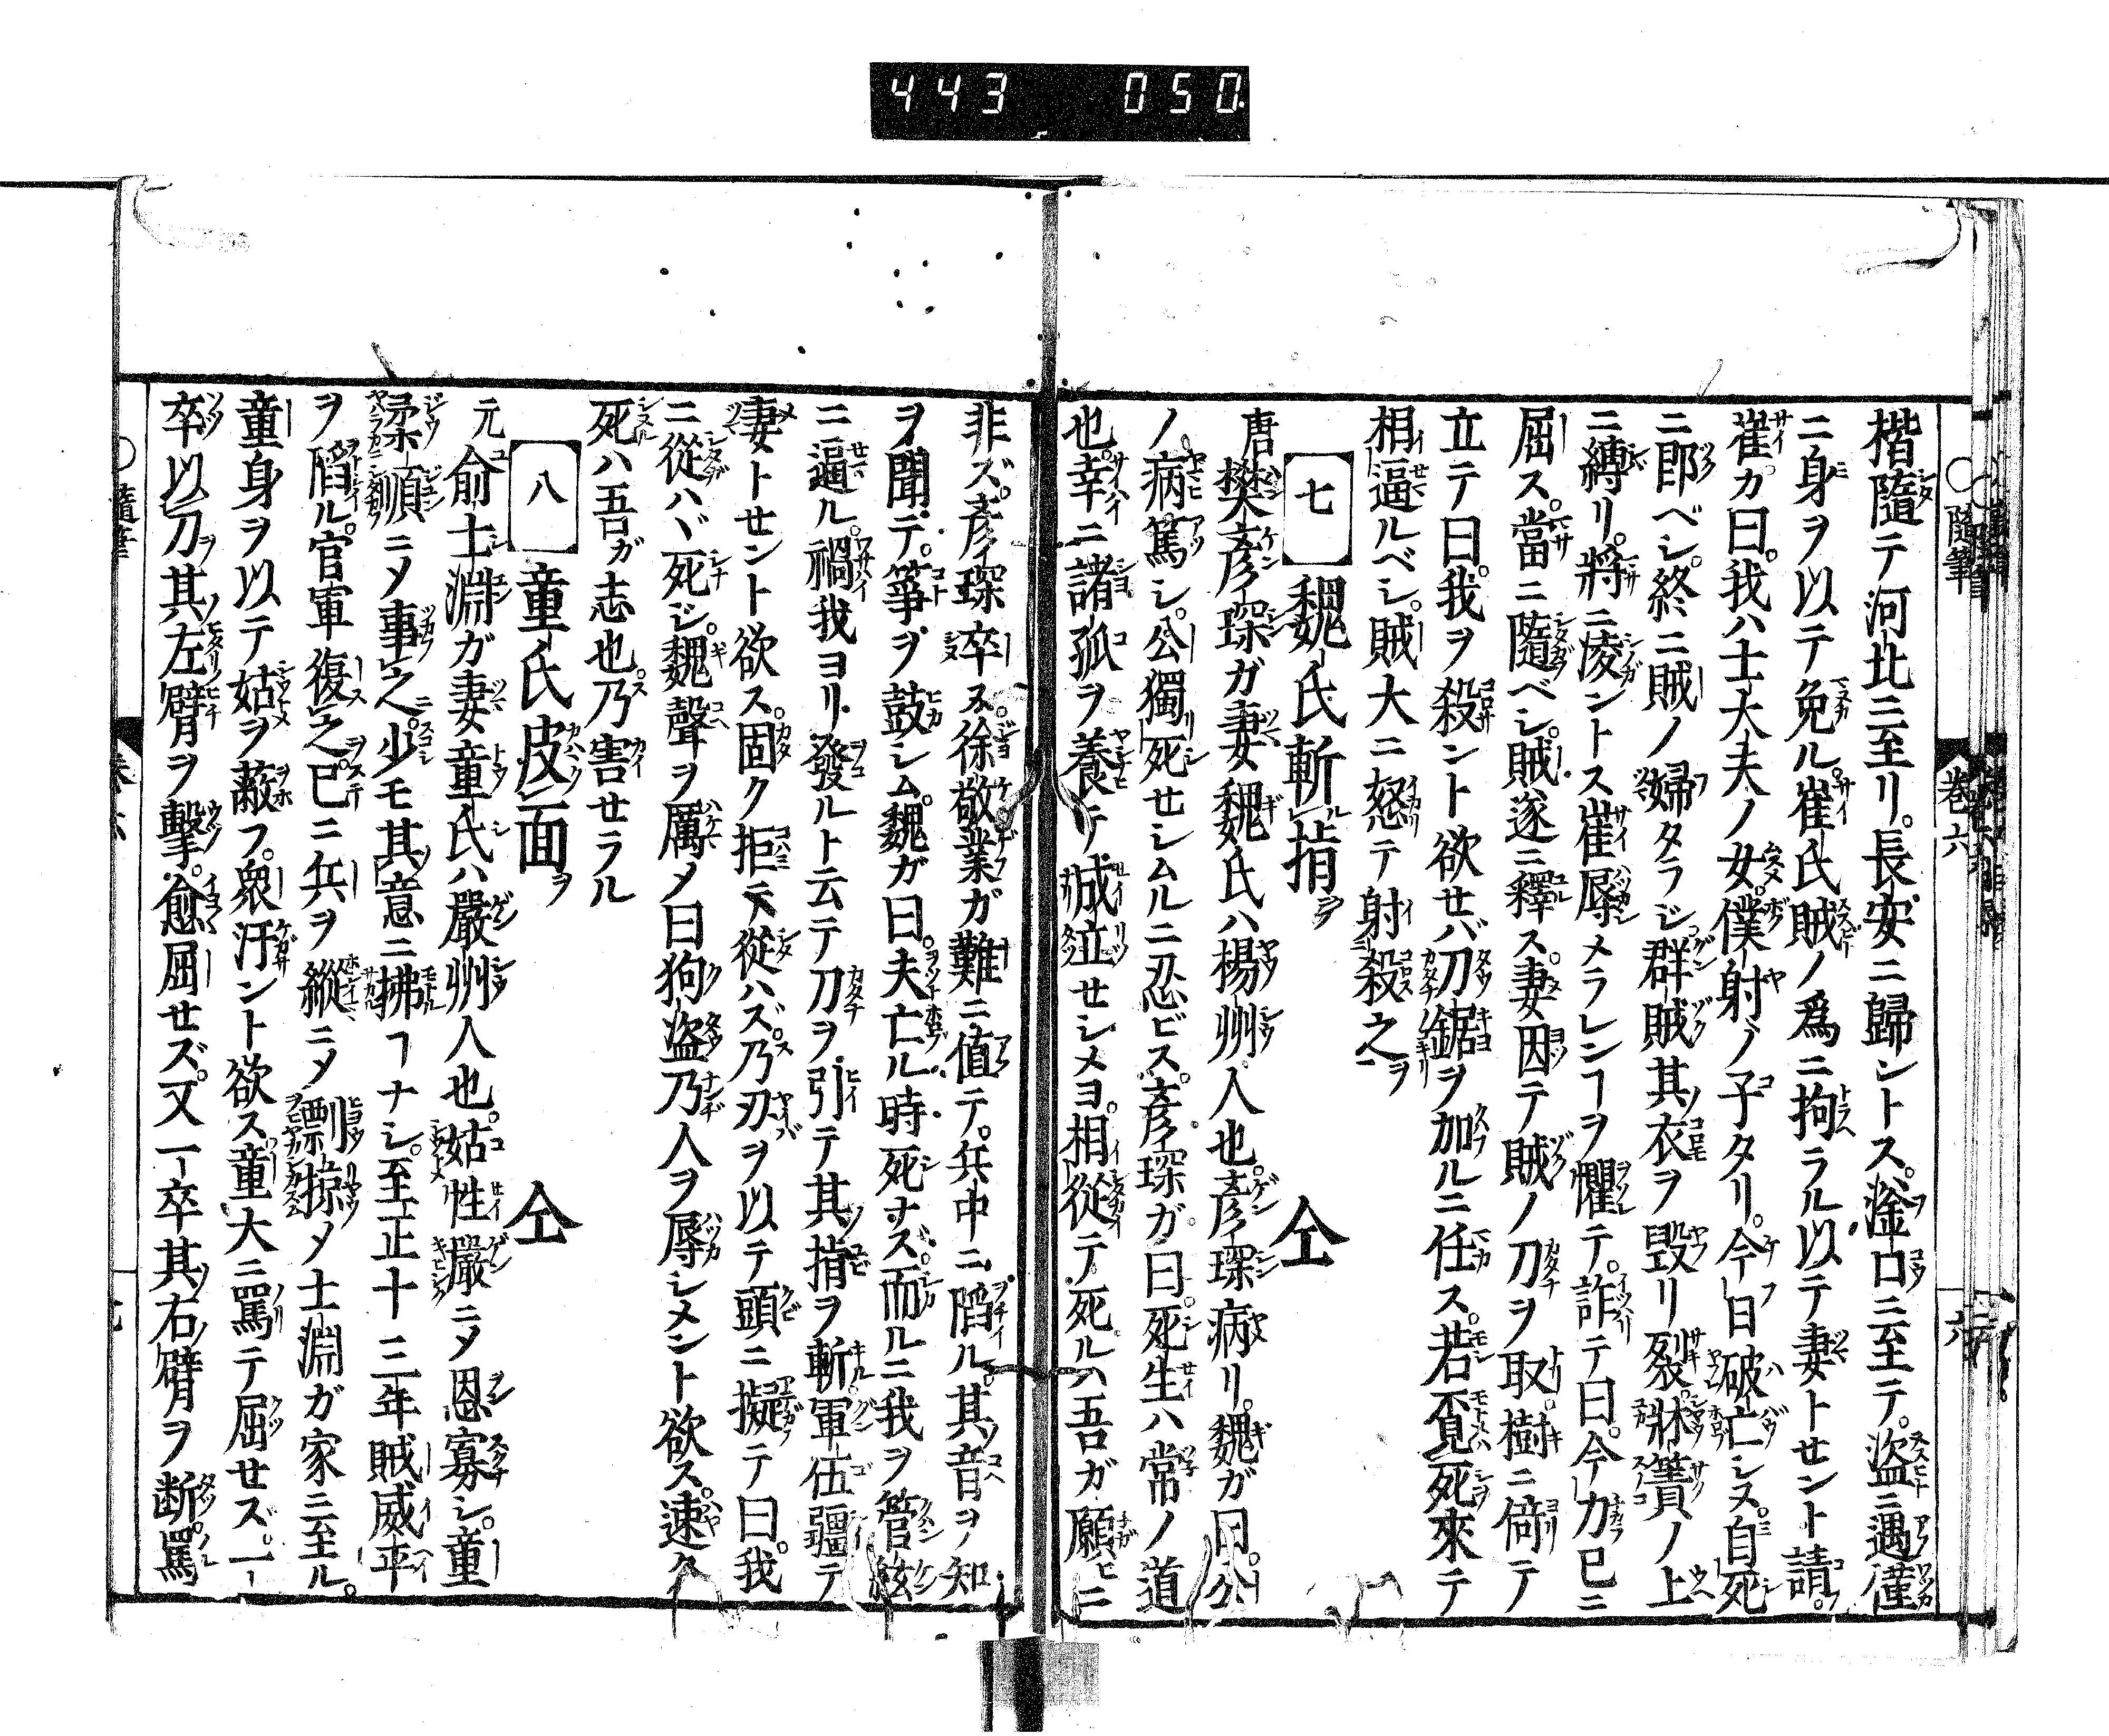 443 050
楷隨テ河北ニ至リ。長安ニ歸ントス。滏口ニ至テ。盗ニ遇僅
ニ身ヲ以テ免ル。崔氏賊ノ爲ニ拘ラル以テ妻トセント請。
崔カ曰。我ハ士大夫ノ女。僕射ノ子タリ。今日破亡シヌ。自死
ニ即ベシ。終ニ賊ノ婦タラジ。群賊其衣ヲ毀リ裂。牀簀ノ上
ニ縛リ。將ニ凌ントス崔辱メラレンヿヲ懼テ。詐テ曰。今力已ニ
屈ス。當ニ隨ベシ。賊遂ニ釋ス。妻因テ賊ノ刀ヲ取。樹ニ倚テ
立テ曰。我ヲ殺ント欲セバ刀鋸ヲ加ルニ任ス。若覓死來テ
相逼ルベシ。賊大ニ怒テ射殺之
七 魏氏斬指 仝
唐樊彥琛ガ妻魏氏ハ楊州人也。彥琛病リ。魏ガ曰。公
ノ病篤シ。公獨死セシムルニ忍ビス。彥琛ガ曰。死生ハ常ノ道
也。幸ニ諸孤ヲ養テ成立セシメヨ。相從テ死ルハ吾ガ願ニ
非ズ。彥琛卒ヌ。徐敬業ガ難ニ値テ。兵中ニ陷ル。其音ヲ知
ヲ聞テ。箏ヲ鼓シム。魏ガ曰。夫亡ル時死ナス。而ルニ我ヲ管絃
ニ逼ル。禍我ヨリ發ルト云テ刀ヲ引テ其指ヲ斬。軍伍疆テ
妻トセント欲ス。固ク拒テ從ハズ。乃刃ヲ以テ頭ニ擬テ曰。我
ニ從ハヾ死ジ。魏聲ヲ厲メ曰狗盗乃人ヲ辱シメント欲ス。速ク
死ハ吾ガ志也。乃害セラル
八 童氏皮面ヲ 仝
元俞士淵ガ妻童氏ハ嚴州人也。姑性嚴ニメ恩寡シ。童
柔順ニメ事之。少モ其意ニ拂フヿナシ。至正十三年賊威平
ヲ陷ル。官軍復之。已ニ兵ヲ縱ニメ剽掠メ士淵ガ家ニ至ル。
童身ヲ以テ姑ヲ蔽フ。衆汙ント欲ス童大ニ罵テ屈セズ。一
卒以刀其左臂ヲ擊。愈屈セズ。又一卒其右臂ヲ断。罵